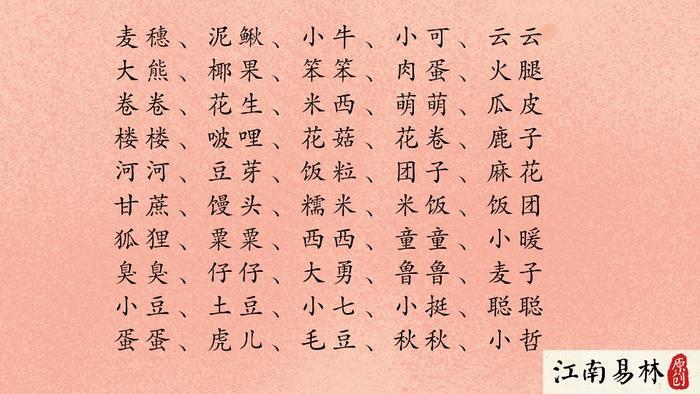 麦穗、泥鳅、小牛、小可、云云
大熊、椰果、笨笨、肉蛋、火腿
卷卷、花生、米西、萌萌、瓜皮
楼楼、啵哩、花菇、花卷、鹿子
河河、豆芽、饭粒、团子、麻花
甘蔗、馒头、糯米、米饭、饭团
狐狸、粟粟、西西、童童、小暖
臭臭、仔仔、大勇、鲁鲁、麦子
小豆、土豆、小七、小挺、聪聪
蛋蛋、虎儿、毛豆、秋秋、小哲
江南易林 原创